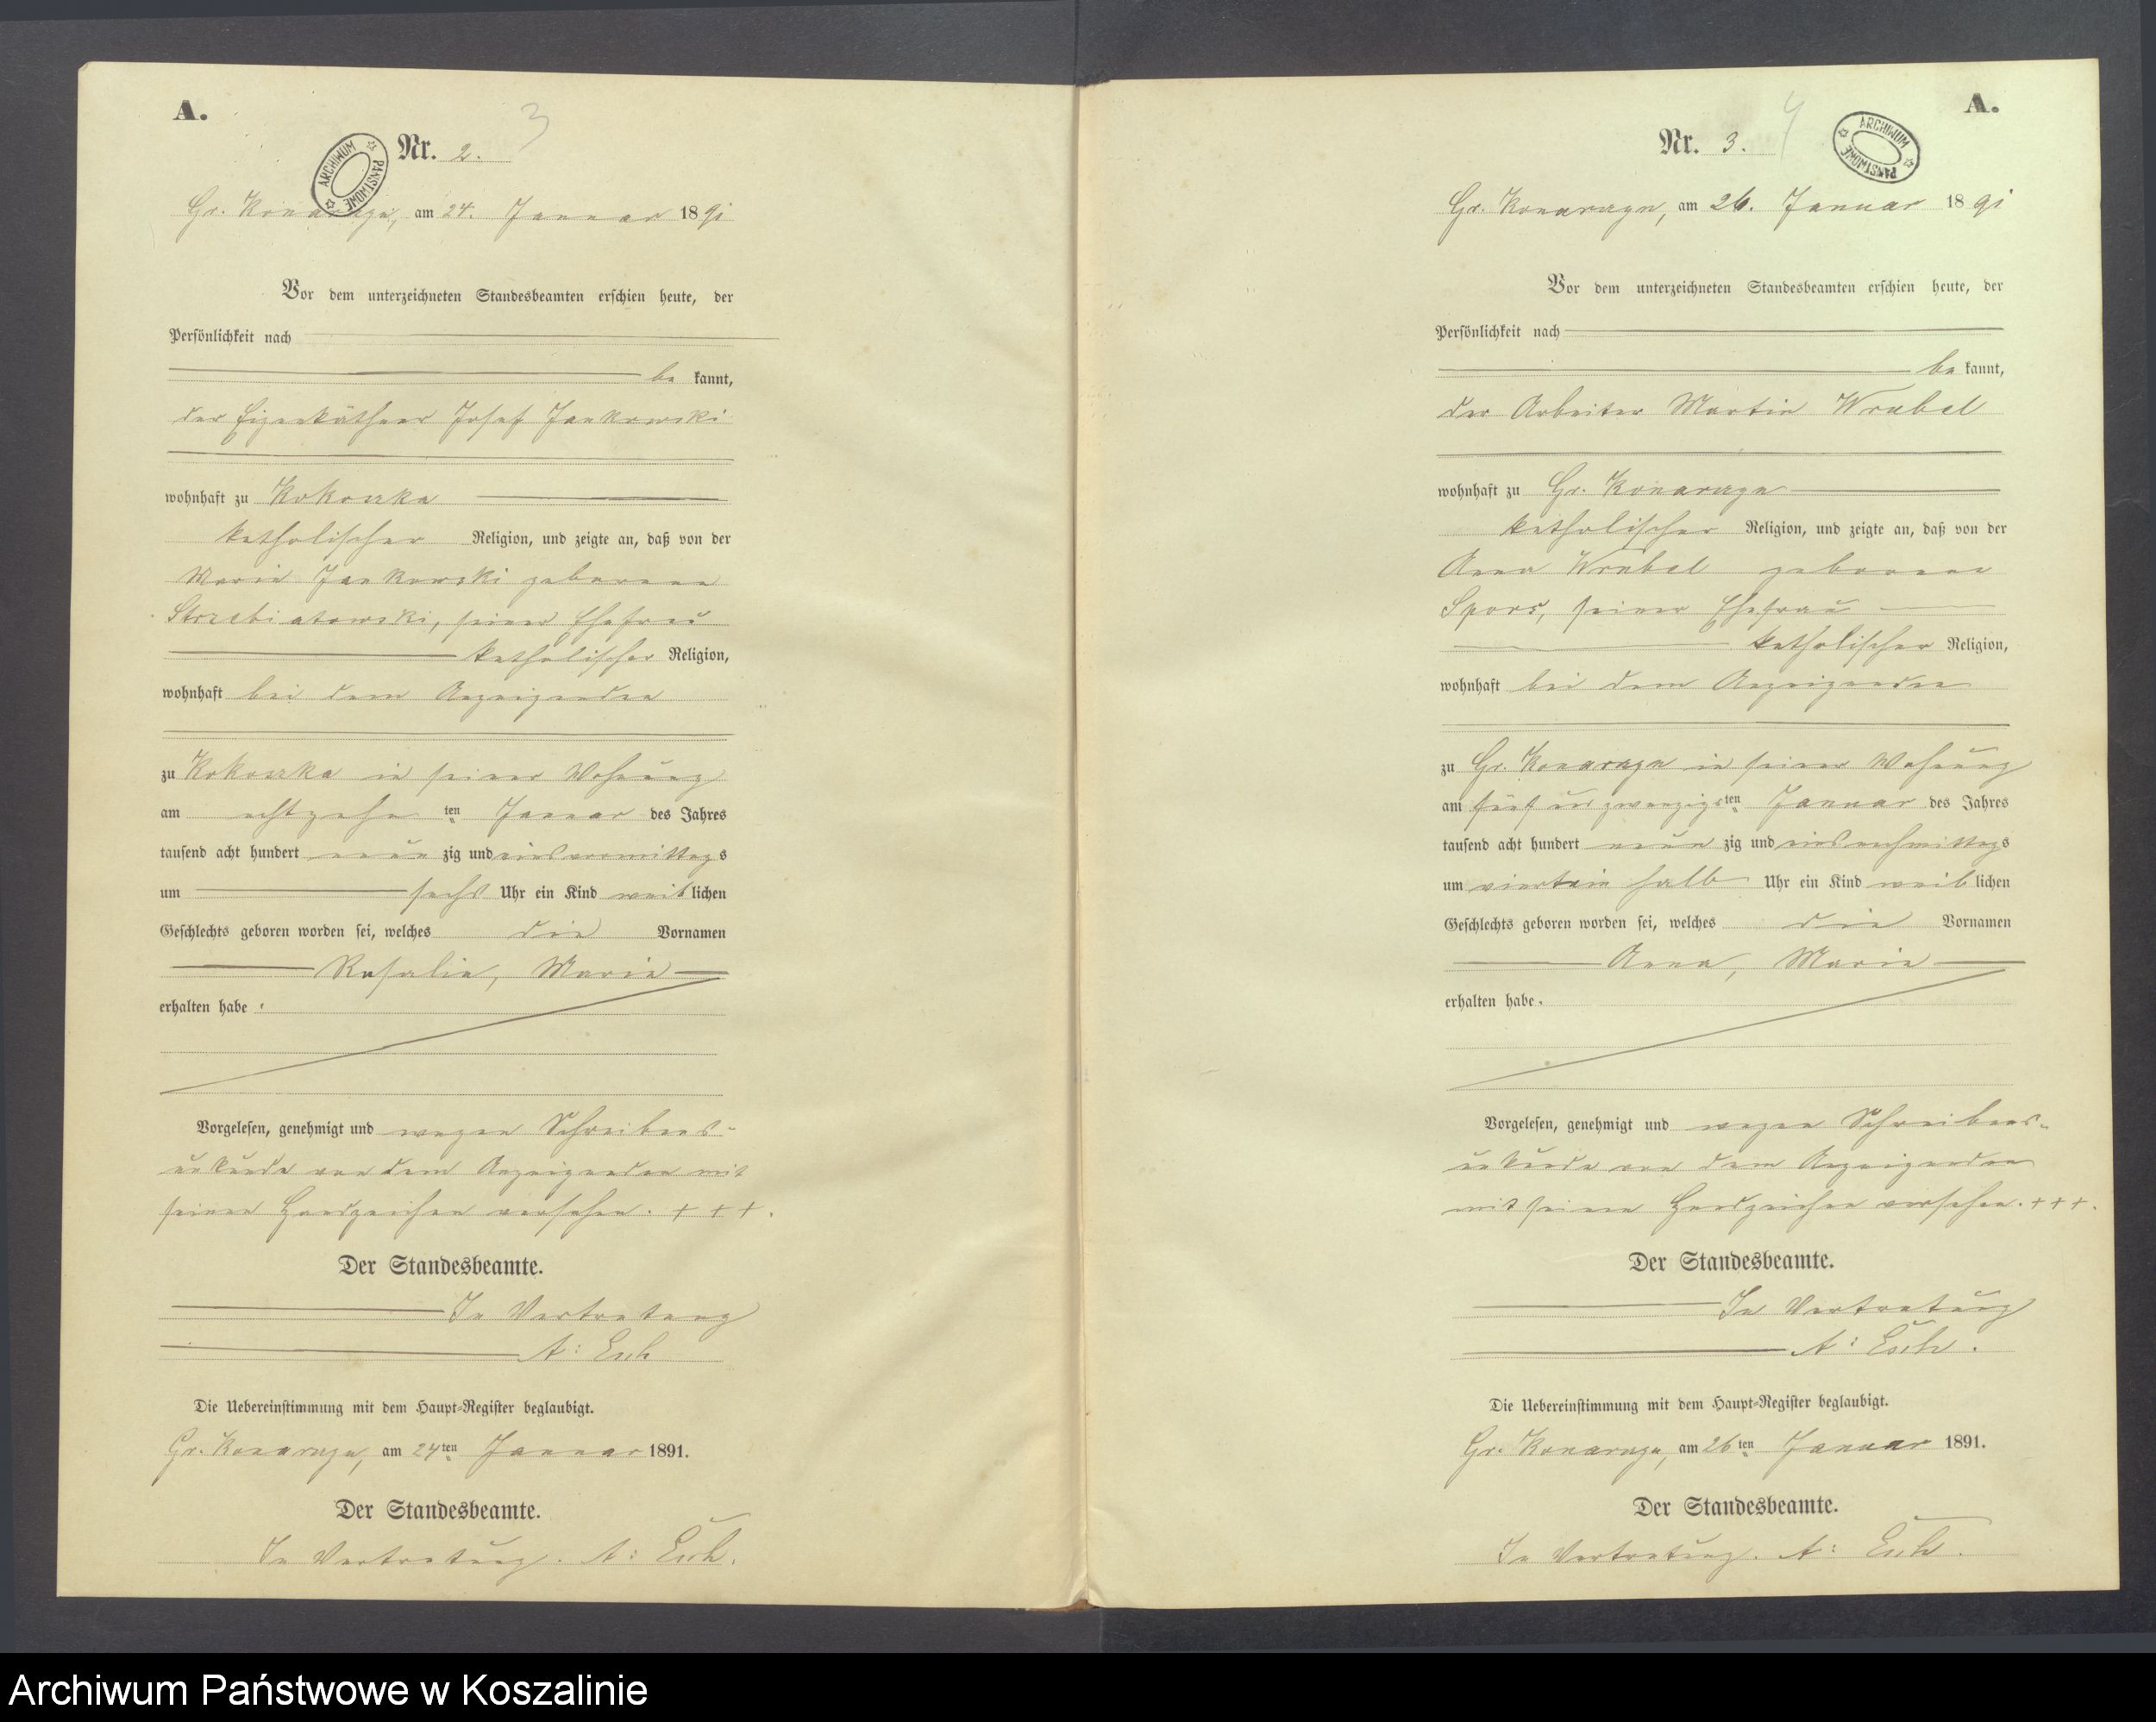 A.
3
Nr. 2.
ARCHIWUM PAŃSTWOWE
Gr. Konarczyn, am 24. Januar 1891
Vor dem unterzeichneten Standesbeamten erschien heute, der
Persönlichkeit nach
be kannt,
der Eigenkäthner Josef Jankowski
wohnhaft zu Kokoszka
katholischer Religion, und zeigte an, daß von der
Marie Jankowski geborene
Strzebiatowski, seiner Ehefrau
katholischer Religion,
wohnhaft bei dem Anzeigenden
zu Kokoszka in seiner Wohnung
am achtzehn ten Januar des Jahres
tausend acht hundert neun zig und eins vormittags
um sechs Uhr ein Kind weiblichen
Geschlechts geboren worden sei, welches die Vornamen
Rosalie, Marie
erhalten habe.
Vorgelesen, genehmigt und wegen Schreibens-
unkunde von dem Anzeigenden mit
seinen Handzeichen versehen. + + +.
Der Standesbeamte.
In Vertretung
A: Esch
Die Uebereinstimmung mit dem Haupt-Register beglaubigt.
Gr. Konarczyn, am 24ten Januar 1891.
Der Standesbeamte.
In Vertretung. A: Esch.
A.
4
Nr. 3.
ARCHIWUM PAŃSTWOWE
Gr. Konarczyn, am 26. Januar 1891
Vor dem unterzeichneten Standesbeamten erschien heute, der
Persönlichkeit nach
be kannt,
der Arbeiter Martin Wrubel
wohnhaft zu Gr. Konarczyn
katholischer Religion, und zeigte an, daß von der
Anna Wrubel geborene
Spors, seiner Ehefrau
katholischer Religion,
wohnhaft bei dem Anzeigenden
zu Gr. Konarczyn in seiner Wohnung
am fünf und zwanzigsten Januar des Jahres
tausend acht hundert neun zig und eins nachmittags
um ein halb Uhr ein Kind weiblichen
Geschlechts geboren worden sei, welches die Vornamen
Anna, Marie
erhalten habe.
Vorgelesen, genehmigt und wegen Schreibens-
unkunde von dem Anzeigenden
mit seinen Handzeichen versehen. + + +.
Der Standesbeamte.
In Vertretung
A: Esch.
Die Uebereinstimmung mit dem Haupt-Register beglaubigt.
Gr. Konarczyn, am 26ten Januar 1891.
Der Standesbeamte.
In Vertretung. A: Esch.
Archiwum Państwowe w Koszalinie